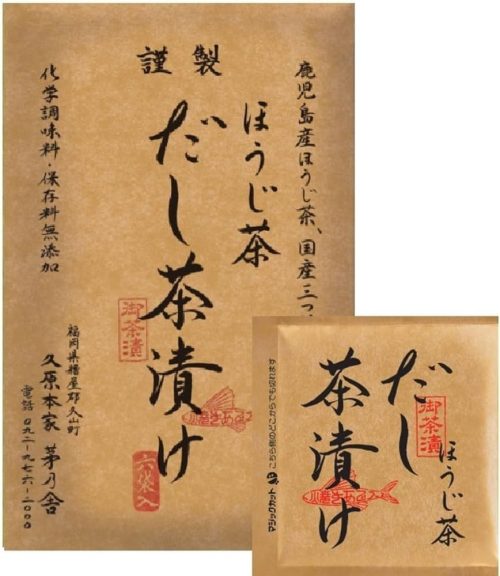 謹製
鹿児島産ほうじ茶、国産三つ
ほうじ茶
だし茶漬け
化学調味料・保存料無添加
御茶漬
六袋入
福岡県糟屋郡久山町
久原本家 茅乃舎
電話 〇九二-九七六-二〇〇〇
だし
ほうじ茶
茶漬け
御茶漬
マジックカット
こちら側のどこからでも切れます